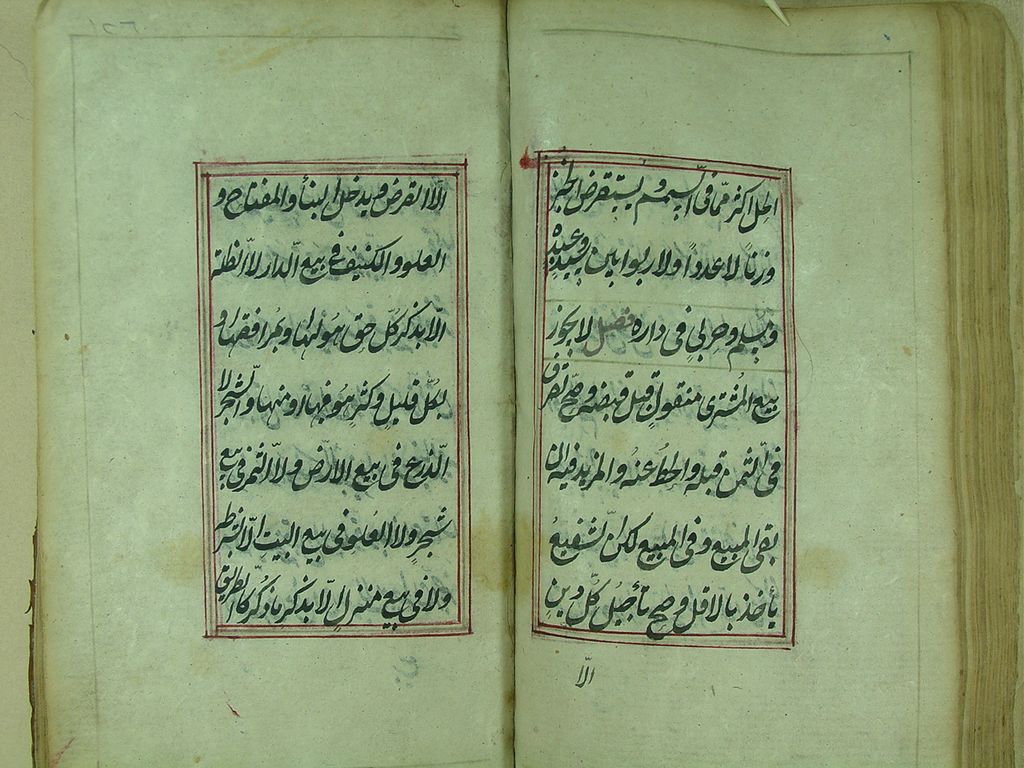 الحل اكثر مما في السمسم ويستقرض الخبز
وزناً لا عدداً ولا ربوا بين سيد وعبده
ومسلم وحربي في داره فصل لا يجوز
بيع المشترى منقولا قبل قبضه وصح تصرف
في الثمن قبله والحط عنه والمزيد فيه ان
بقي المبيع وفي المبيع لكن الشفيع
يأخذ بالاقل وصح تأجيل كل دين
الّا
الّا القرض ويدخل البناء والمفتاح و
العلو والكنيف في بيع الدار لا الظلة
الّا بذكر كل حق هو لها وبمرافقها او
بكل قليل وكثير هو فيها او منها والشجر لا
الزرع في بيع الارض ولا الثمر في بيع
شجر ولا العلو في بيع البيت الّا بشرطه
ولا في بيع منزل الّا بذكر ما ذكر كالطريق